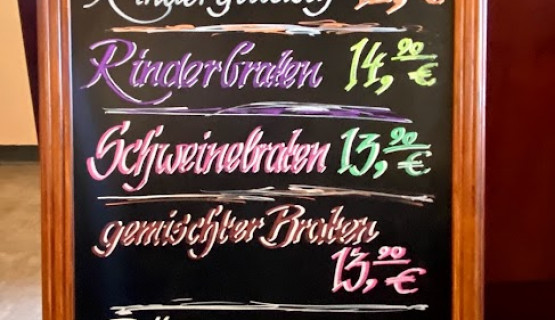 Rindergulasch
Rinderbraten 14,90 €
Schweinebraten 13,90 €
gemischter Braten
13,90 €